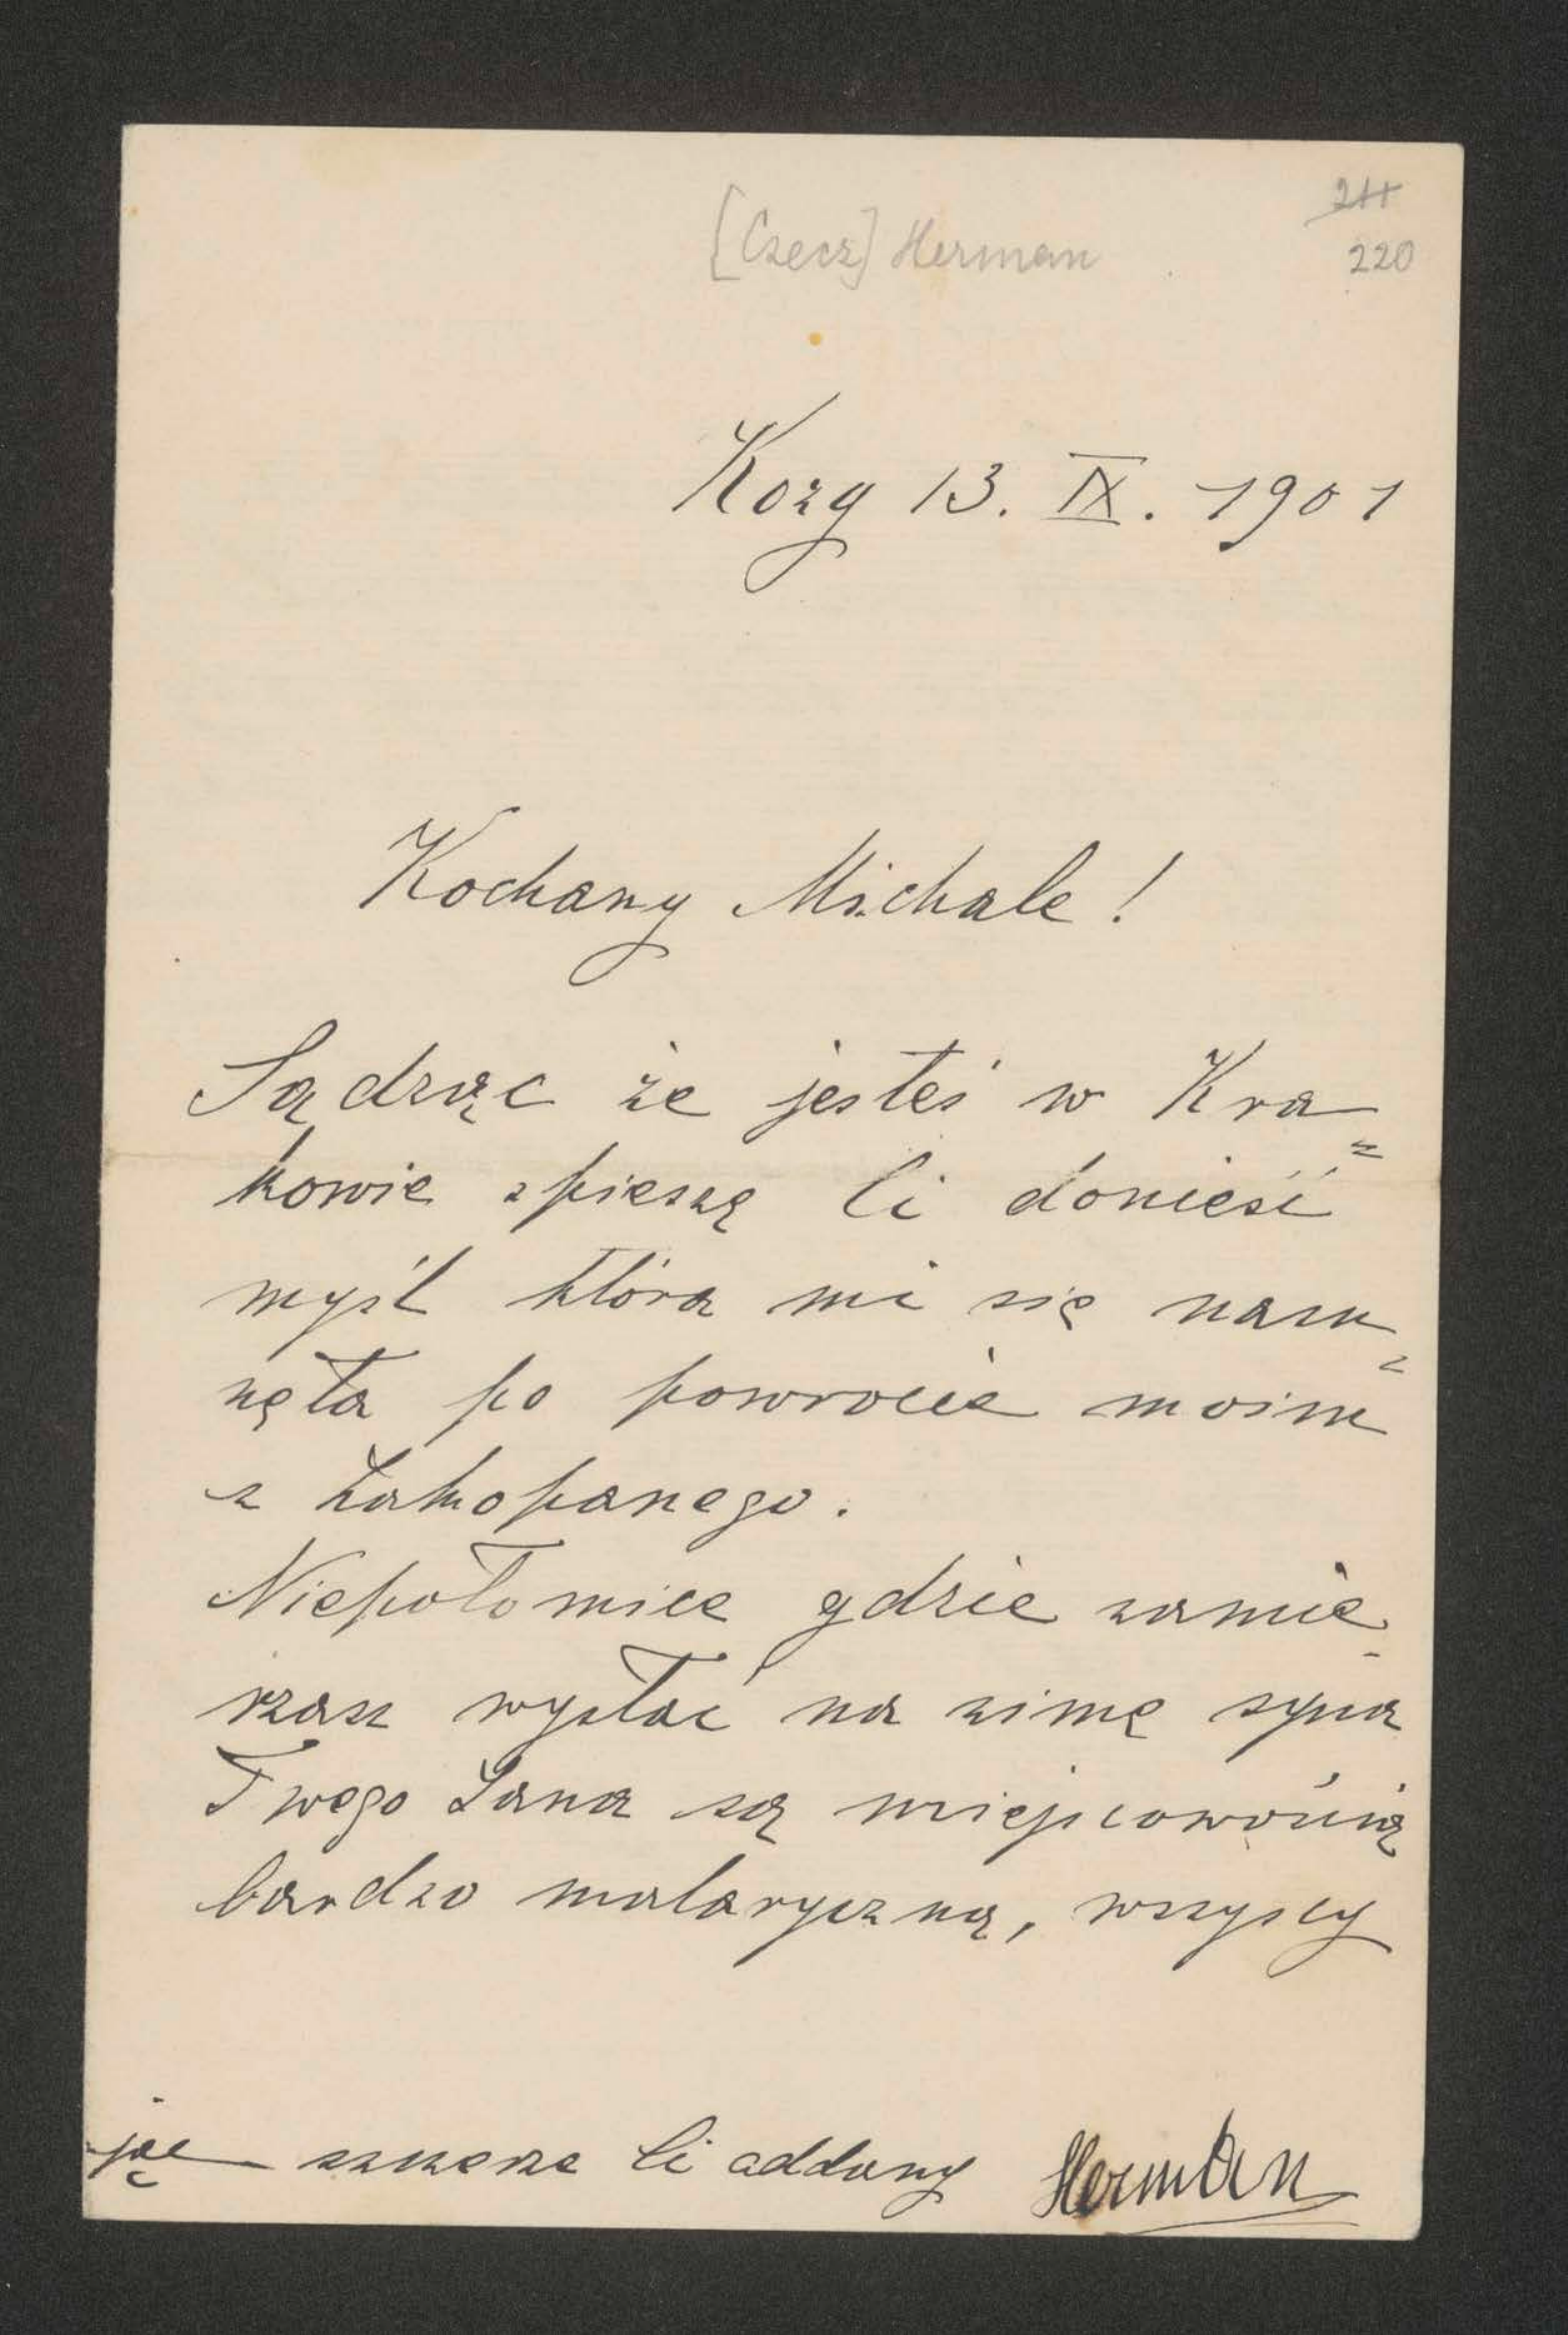 [Czecz] Herman
211
220
Kozy 13. IX. 1901
Kochany Michale!
Sądząc że jesteś w Kra=
kowie spieszę Ci donieść
myśl która mi się nasu=
nęła po powrocie moim
z Zakopanego.
Niepołomice gdzie zamie-
rzasz wysłać na zimę syna
Twego Jana są miejscowością
bardzo malaryczną, wszyscy
jąc szczerze Ci oddany Herman